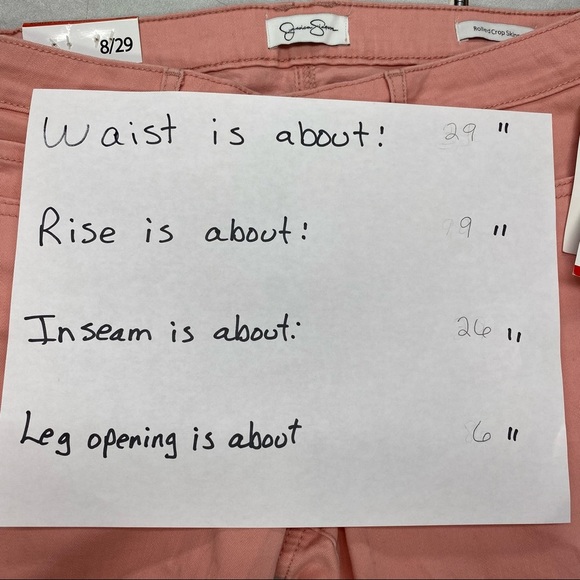 8/29
Jessica Simpson
Rolled Crop Skinny
Waist is about: 29 "
Rise is about: 9 "
Inseam is about: 26 "
Leg opening is about 6 "